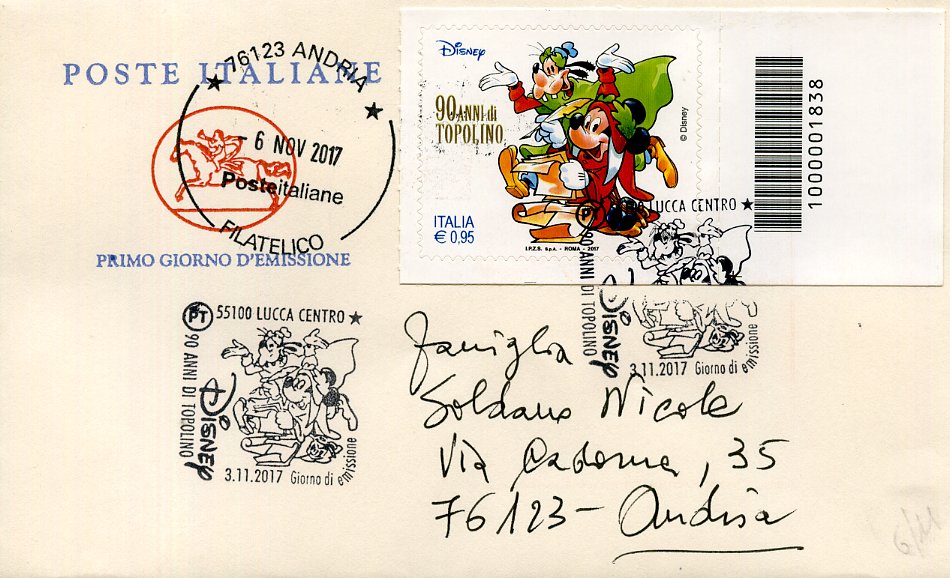 POSTE ITALIANE
76123 ANDRIA
- 6 NOV 2017
Posteitaliane
FILATELICO
PRIMO GIORNO D'EMISSIONE
Disney
90 ANNI di
TOPOLINO
© Disney
ITALIA
€ 0,95
I.P.Z.S. S.p.A. - ROMA - 2017
1000001838
PT 55100 LUCCA CENTRO
90 ANNI DI TOPOLINO
DISNEP
3.11.2017 Giorno di emissione
PT LUCCA CENTRO
90 ANNI DI TOPOLINO
DISNEP
3.11.2017 Giorno di emissione
famiglia
Soldano Nicola
Via Cadorna, 35
76123 - Andria
6/11